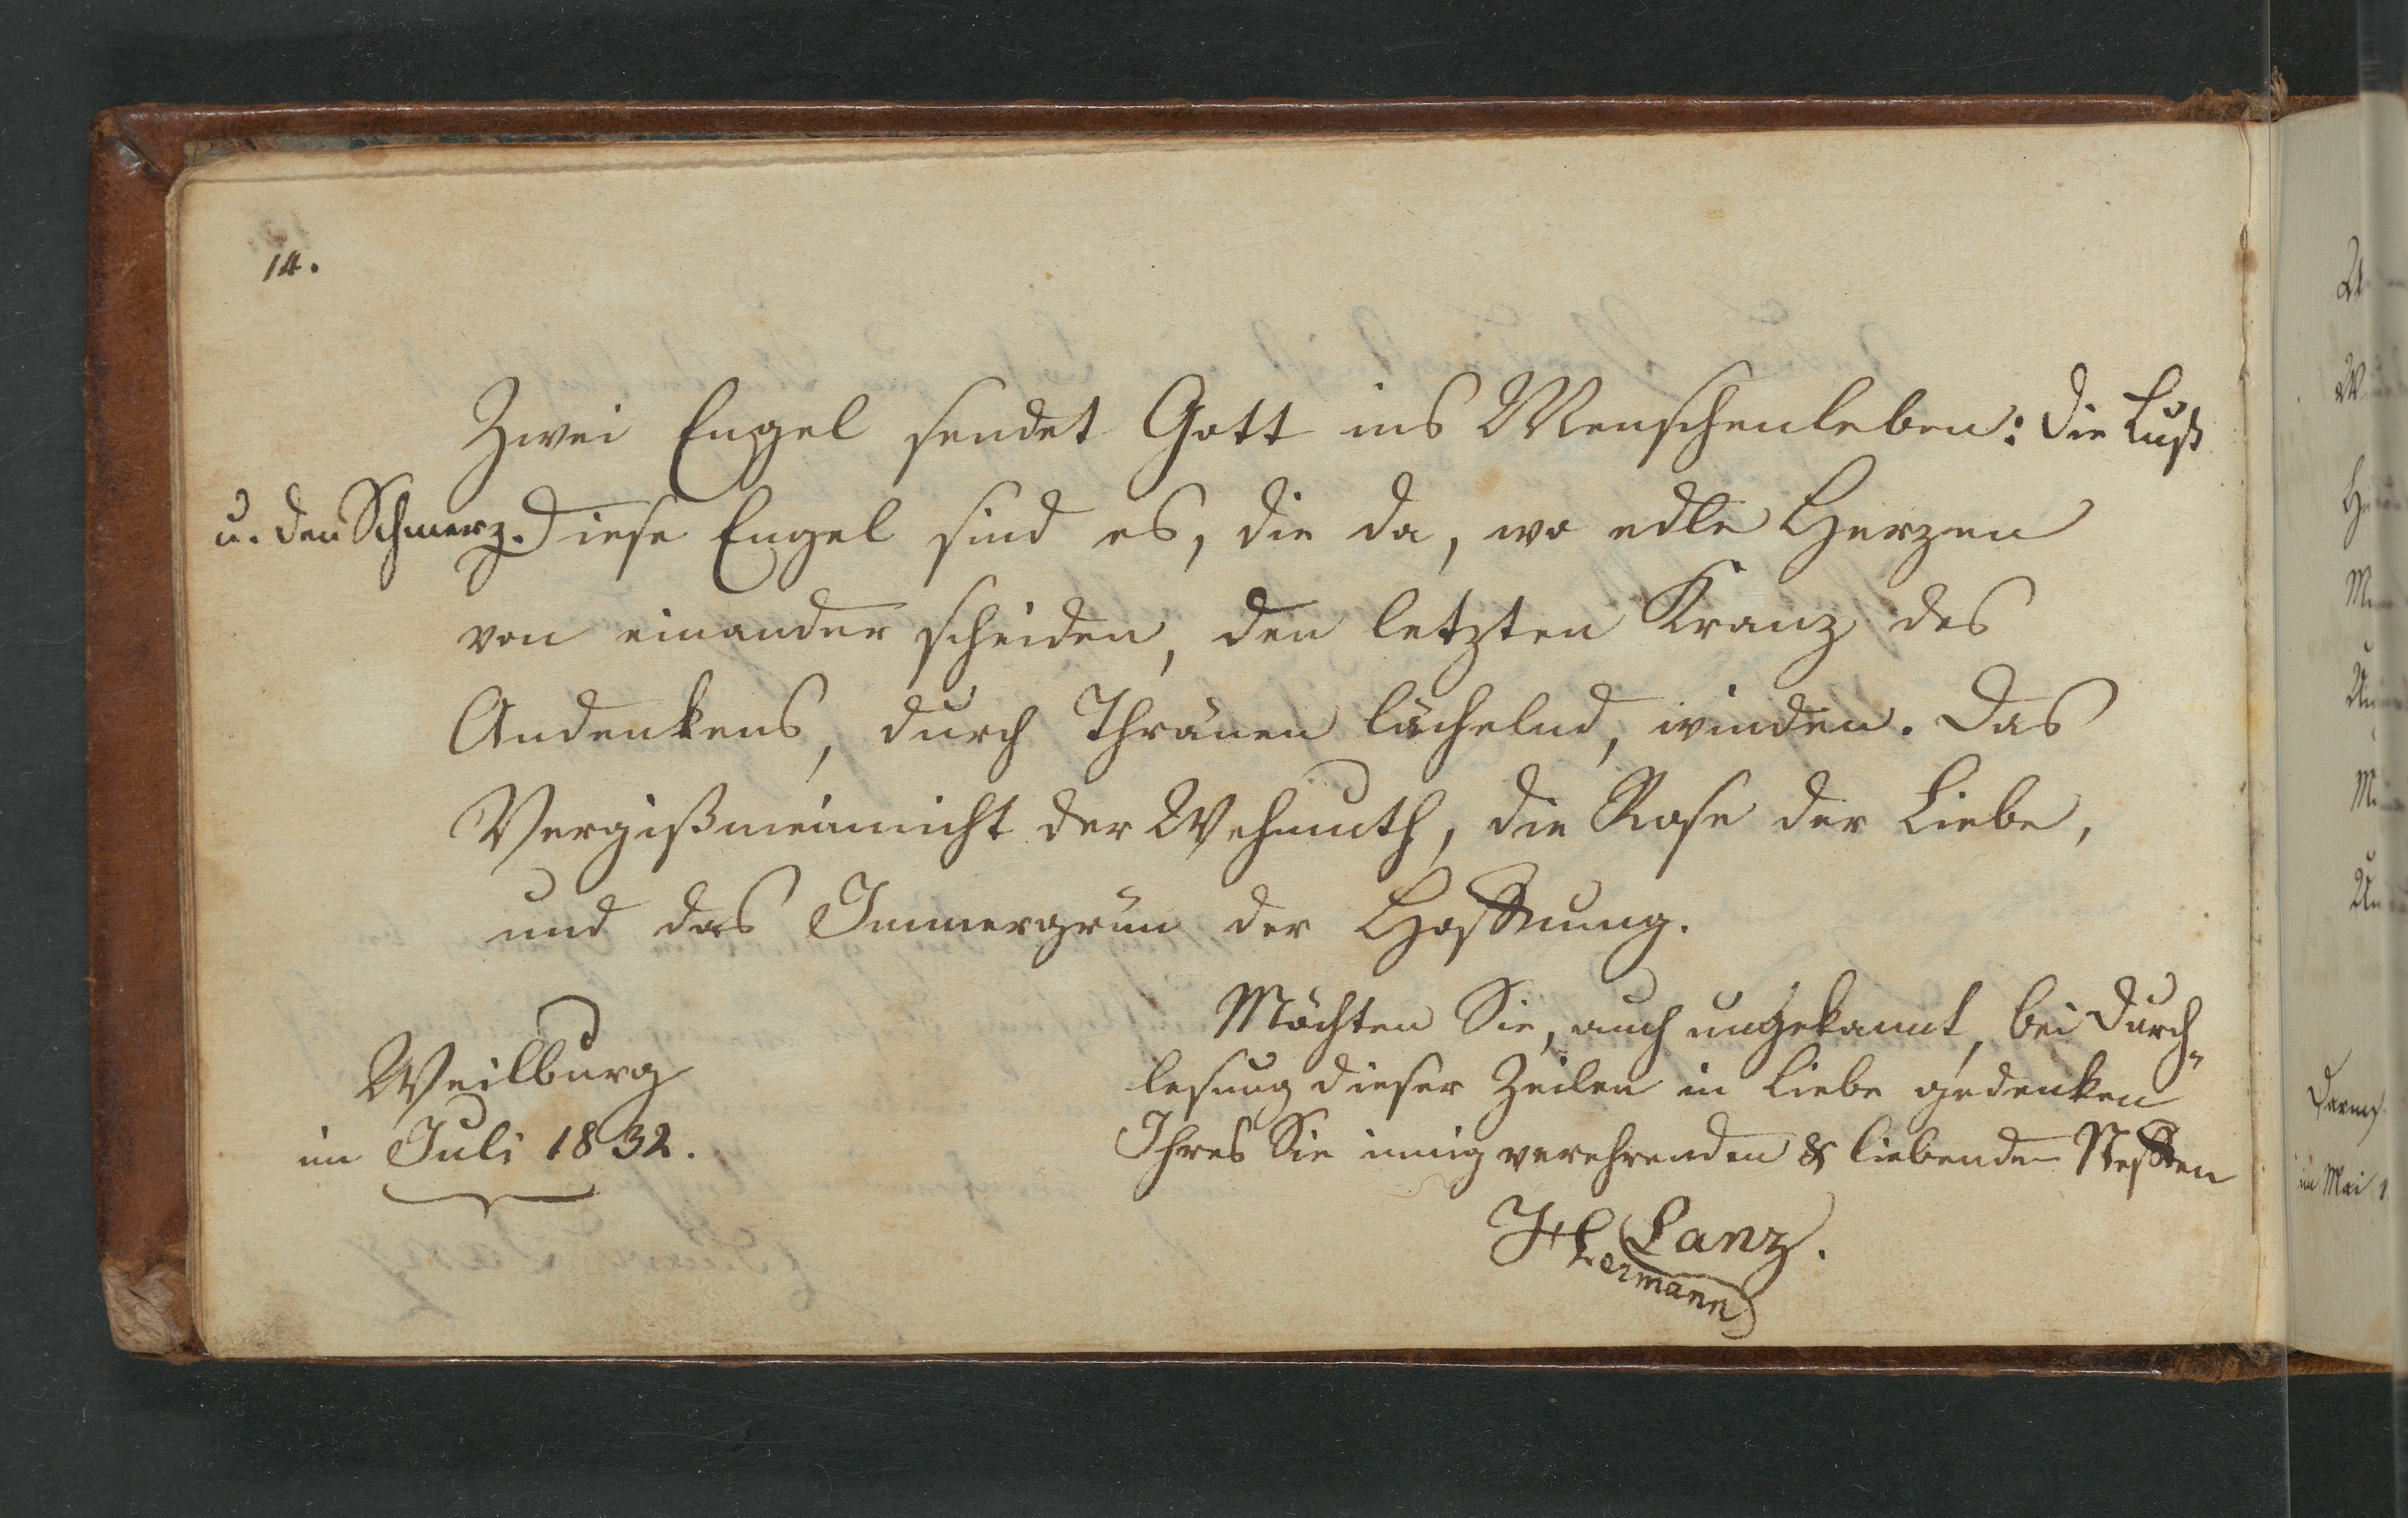 14.
Zwei Engel sendet Gott ins Menschenleben: die Lust
u. den Schmerz. Diese Engel sind es, die da, wo edle Herzen
von einander scheiden, den letzten Kranz des
Andenkens, durch Thränen lächelnd, winden. Das
Vergißmeinnicht der Wehmuth, die Rose der Liebe,
und das Immergrün der Hoffnung.
Möchten Sie, auch ungekannt, bei Durch-
lesung dieser Zeilen in Liebe gedenken
Ihres Sie innig verehrenden & liebenden Neffen
Lanz.
Hermann
Weilburg
im Juli 1832.
im Mai